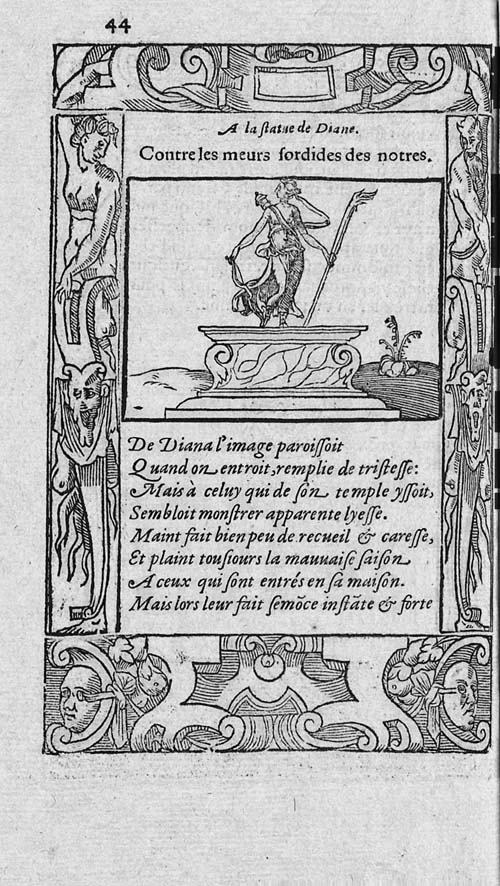 44
A la ſtatue de Diane.
Contre les meurs ſordides des notres.
De Diana l'image paroiſſoit
Quand on entroit, remplie de triſteſſe:
Mais à celuy qui de ſon temple yſſoit,
Sembloit monſtrer apparente lyeſſe.
Maint fait bien peu de recueil & careſſe,
Et plaint touſiours la mauuaiſe ſaiſon
A ceux qui ſont entrés en ſa maiſon.
Mais lors leur fait ſemõce inſtãte & forte